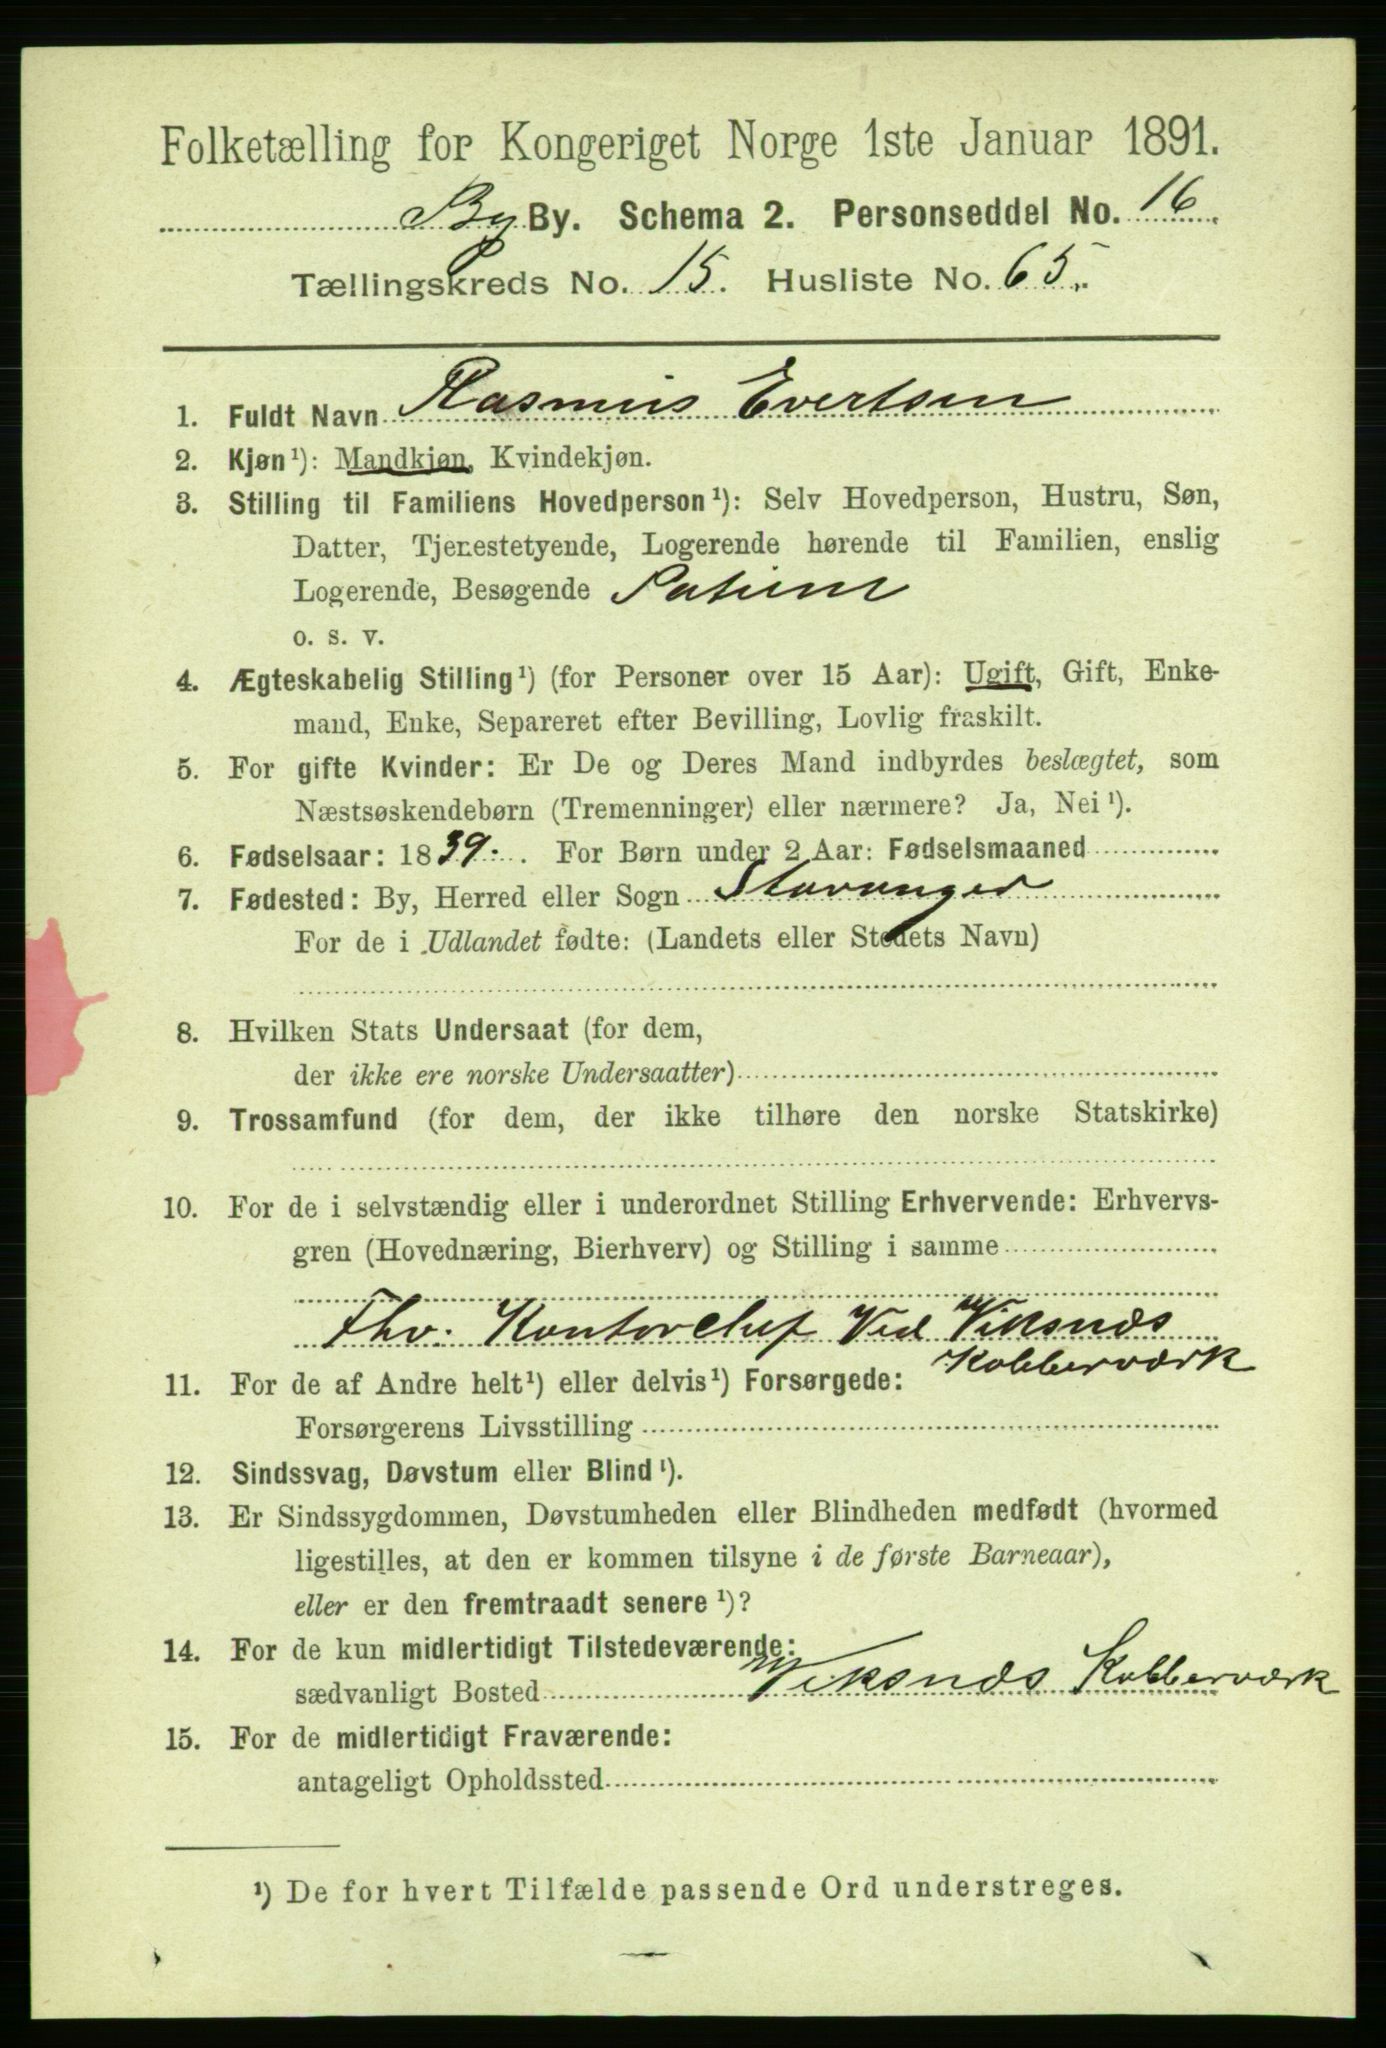 Folketælling for Kongeriget Norge 1ste Januar 1891.
By By. Schema 2. Personseddel No. 16.
Tællingskreds No. 15. Husliste No. 65.
1. Fuldt Navn Rasmus Evertsen
2. Kjøn¹): Mandkjøn, Kvindekjøn.
3. Stilling til Familiens Hovedperson¹): Selv Hovedperson, Hustru, Søn,
Datter, Tjenestetyende, Logerende hørende til Familien, enslig
Logerende, Besøgende Patient
o. s. v.
4. Ægteskabelig Stilling¹) (for Personer over 15 Aar): Ugift, Gift, Enke-
mand, Enke, Separeret efter Bevilling, Lovlig fraskilt.
5. For gifte Kvinder: Er De og Deres Mand indbyrdes beslægtet, som
Næstsøskendebørn (Tremenninger) eller nærmere? Ja, Nei¹).
6. Fødselsaar: 1839. For Børn under 2 Aar: Fødselsmaaned
7. Fødested: By, Herred eller Sogn Stavanger
For de i Udlandet fødte: (Landets eller Stedets Navn)
8. Hvilken Stats Undersaat (for dem,
der ikke ere norske Undersaatter)
9. Trossamfund (for dem, der ikke tilhøre den norske Statskirke)
10. For de i selvstændig eller i underordnet Stilling Erhvervende: Erhvervs-
gren (Hovednæring, Bierhverv) og Stilling i samme
Fhv. Kontorchef Ved Viksnæs
Kobberværk
11. For de af Andre helt¹) eller delvis¹) Forsørgede:
Forsørgerens Livsstilling
12. Sindssvag, Døvstum eller Blind¹).
13. Er Sindssygdommen, Døvstumheden eller Blindheden medfødt (hvormed
ligestilles, at den er kommen tilsyne i de første Barneaar),
eller er den fremtraadt senere¹)?
14. For de kun midlertidigt Tilstedeværende:
sædvanligt Bosted Viksnæs Kobberværk
15. For de midlertidigt Fraværende:
antageligt Opholdssted
¹) De for hvert Tilfælde passende Ord understreges.